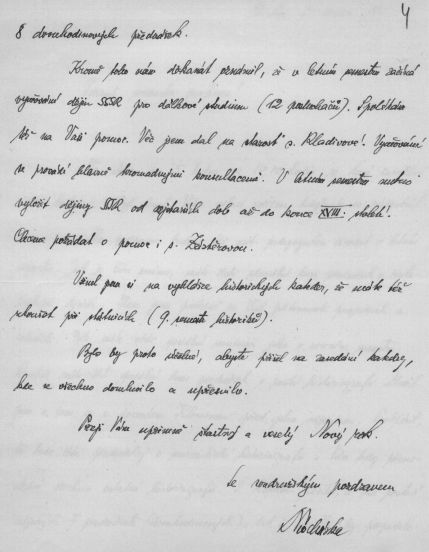 4
8 dvouhodinových přednášek.
Kromě toho nám děkanát oznámil, že v letním semestru začíná
vyučování dějin SSSR pro dálkové studium (12 posluchačů). Spoléhám
též na Vaši pomoc. Věc jsem dal na starost s. Kladivové! Vyučování
se provádí hlavně hromadnými konsultacemi. V letním semestru nutno
vyložit dějiny SSSR od nejstarších dob až do konce XVIII. století!
Chceme požádat o pomoc i s.
jsem si na vyhlášce historických kateder, že máte též
zkoušet při státnicích (9. semestr historiků).
Bylo by proto účelné, abyste přijel na zasedání katedry,
kde se všechno domluvilo a upřesnilo.
Přeji Vám upřímně šťastný a veselý Nový rok.
Se soudružským pozdravem